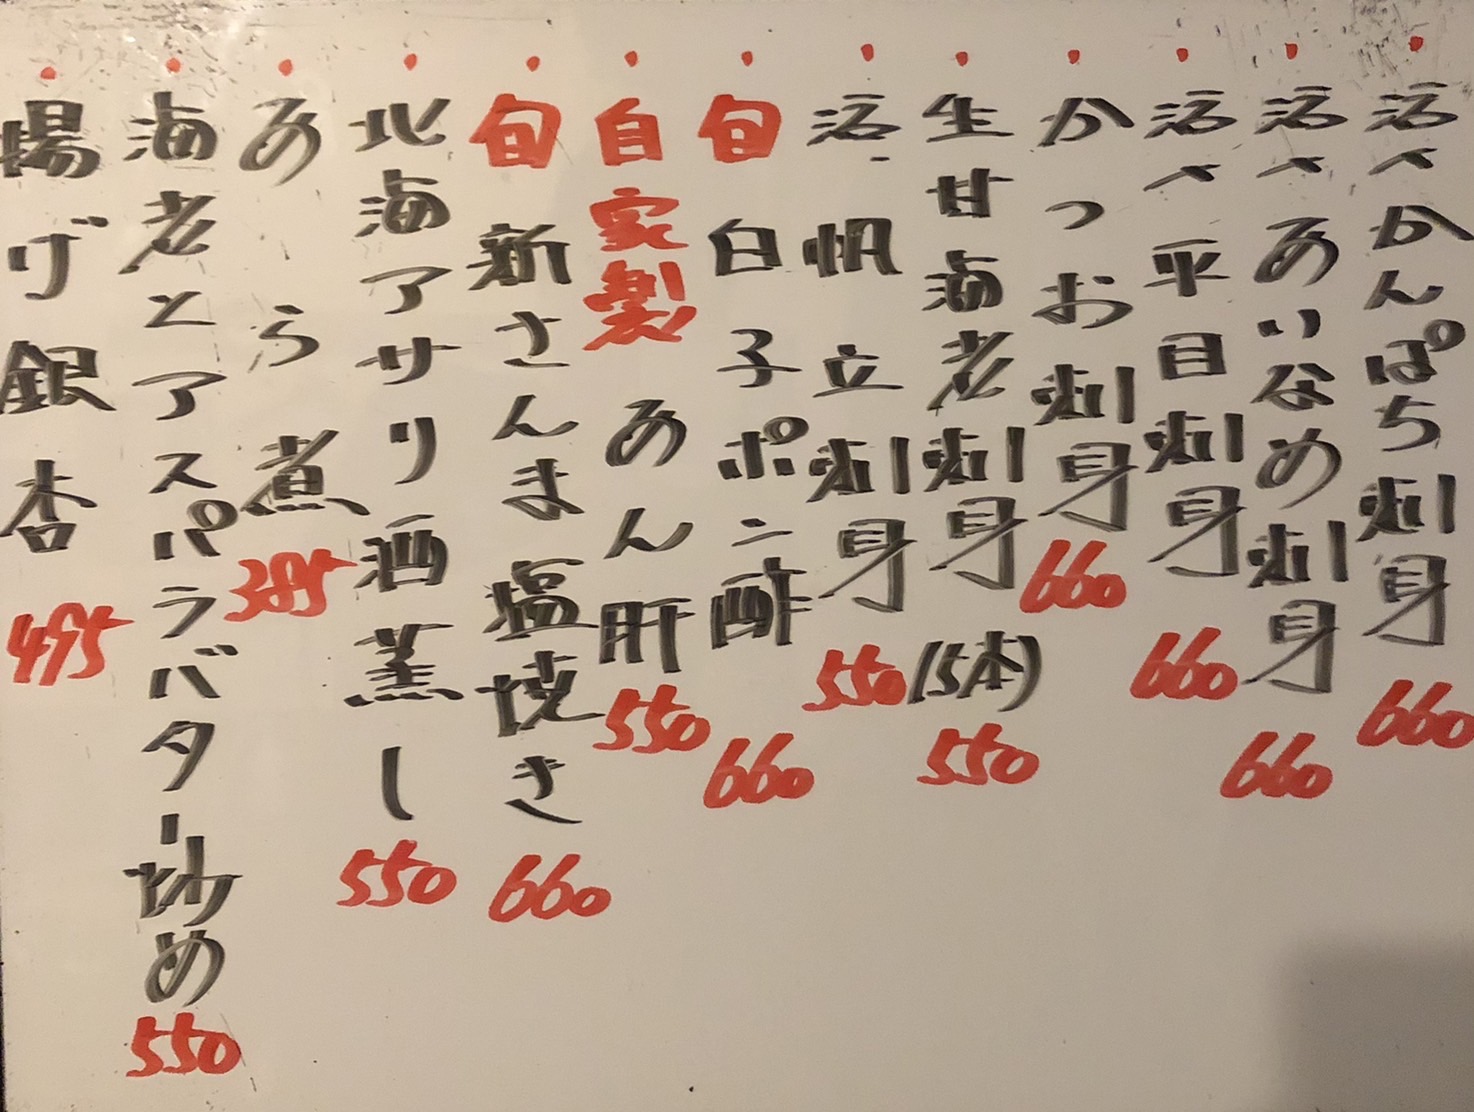 活〆かんぱち刺身 660
活〆あいなめ刺身 660
活〆平目刺身 660
かつお刺身 660
生甘海老刺身(5本) 550
活帆立刺身 550
旬 白子ポン酢 660
自家製 あん肝 550
旬 新さんま塩焼き 660
北海アサリ酒蒸し 550
あら煮 385
海老とアスパラバター炒め 550
揚げ銀杏 495